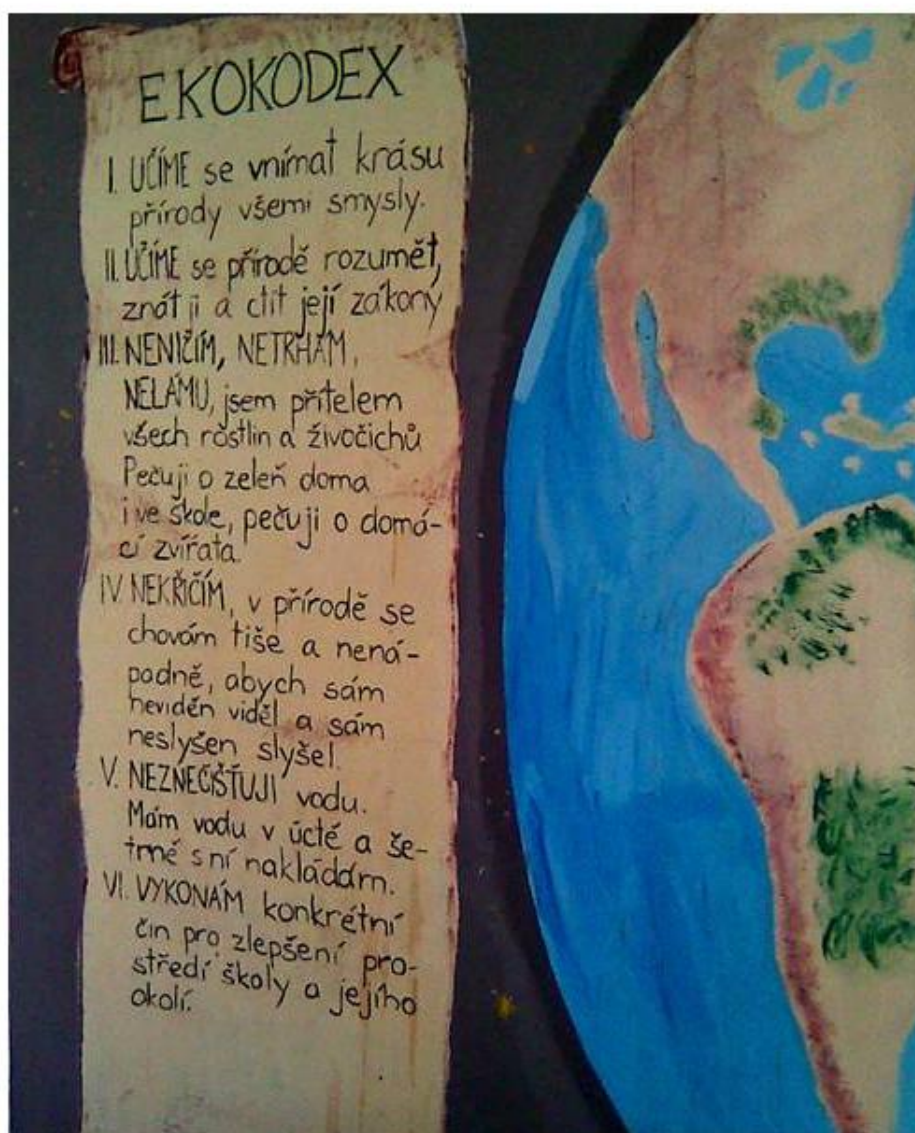 EKOKODEX
I. UČÍME se vnímat krásu
přírody všemi smysly.
II. UČÍME se přírodě rozumět,
znát ji a ctít její zákony
III. NENIČÍM, NETRHÁM,
NELÁMU, jsem přítelem
všech rostlin a živočichů
Pečuji o zeleň doma
i ve škole, pečuji o domá-
cí zvířata.
IV. NEKŘIČÍM, v přírodě se
chovám tiše a nená-
padně, abych sám
neviděn viděl a sám
neslyšen slyšel.
V. NEZNEČIŠŤUJI vodu.
Mám vodu v úctě a še-
trně s ní nakládám.
VI. VYKONÁM konkrétní
čin pro zlepšení pro-
středí školy a jejího
okolí.